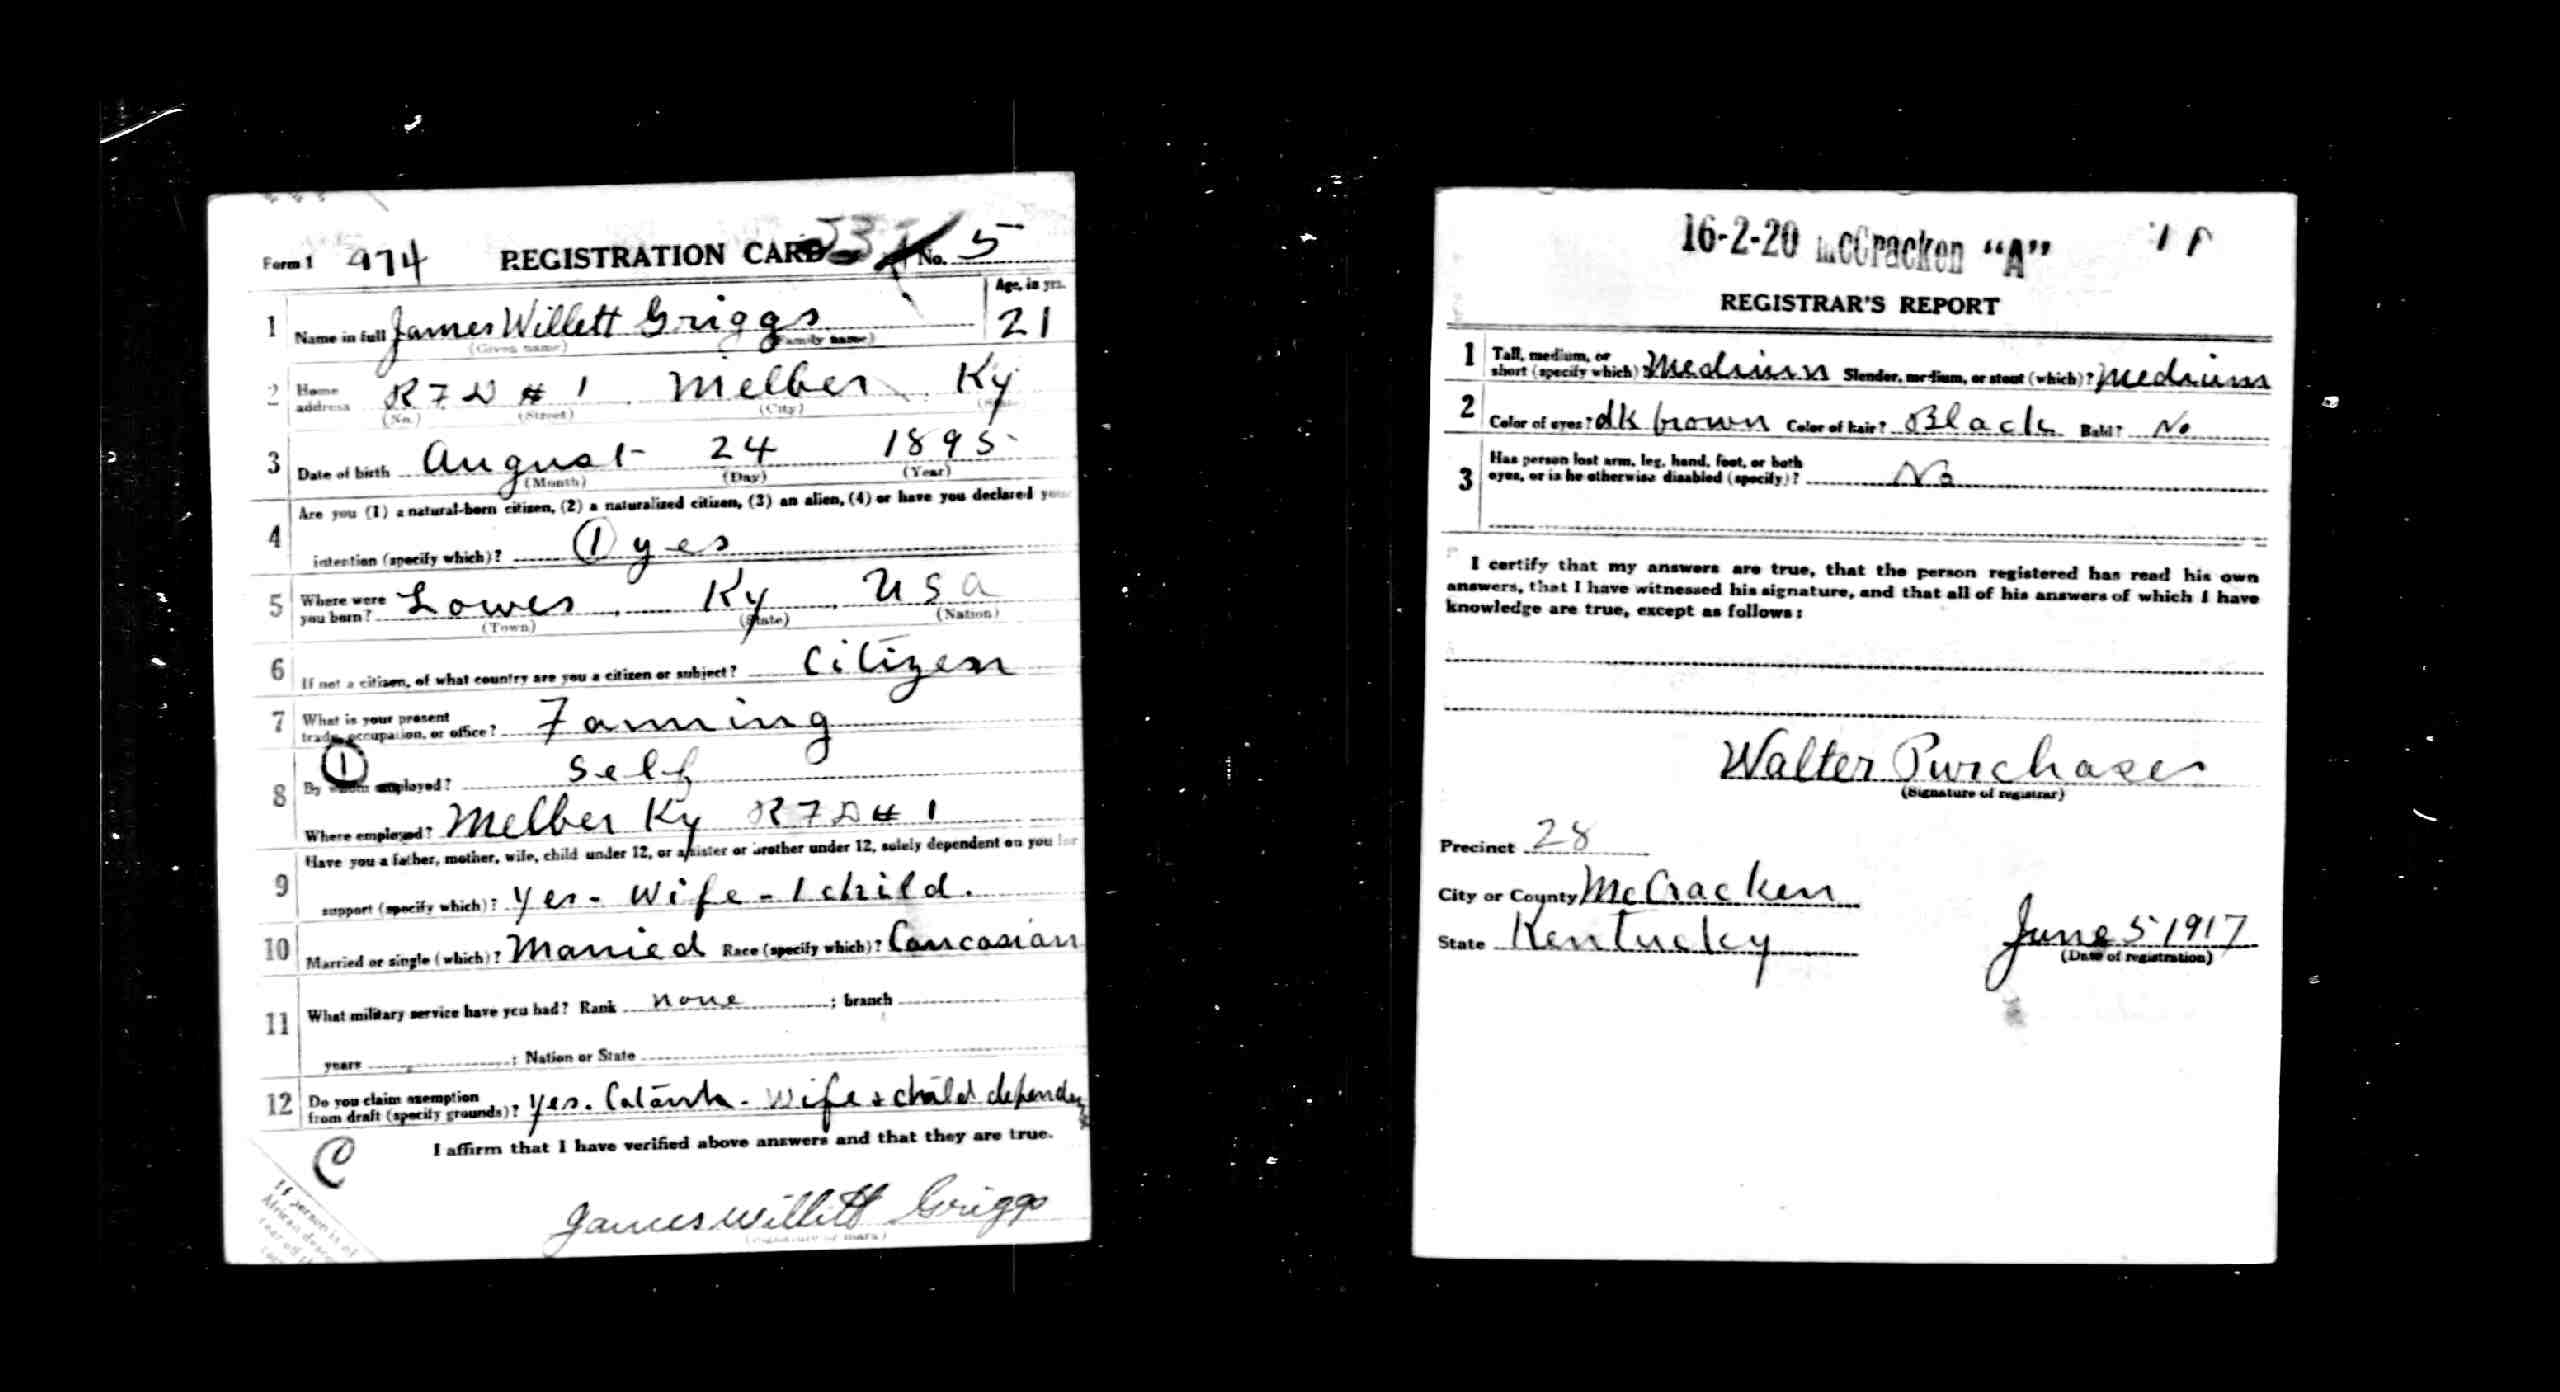 Form 1 974 REGISTRATION CARD No. 5
1 Name in full James Willett Griggs Age, in yrs. 21
(Given name) (Family name)
2 Home address R F D # 1 Melber Ky
(No.) (Street) (City) (State)
3 Date of birth August 24 1895
(Month) (Day) (Year)
4 Are you (1) a natural-born citizen, (2) a naturalized citizen, (3) an alien, (4) or have you declared your
intention (specify which)? ① yes
5 Where were you born? Lowes Ky USA
(Town) (State) (Nation)
6 If not a citizen, of what country are you a citizen or subject? Citizen
7 What is your present trade, occupation, or office? Farming
①
8 By whom employed? Self
Where employed? Melber Ky R F D # 1
9 Have you a father, mother, wife, child under 12, or a sister or brother under 12, solely dependent on you for
support (specify which)? Yes - wife - 1 child.
10 Married or single (which)? Married Race (specify which)? Caucasian
11 What military service have you had? Rank none ; branch
years ; Nation or State
12 Do you claim exemption from draft (specify grounds)? Yes. Wife & child
I affirm that I have verified above answers and that they are true.
C
James Willett Griggs
(Signature or mark)
If person is of
African desce
tear off
16-2-20 McCracken "A"
REGISTRAR'S REPORT
1 Tall, medium, or short (specify which)? Medium Slender, medium, or stout (which)? Medium
2 Color of eyes? dk brown Color of hair? Black Bald? No
3 Has person lost arm, leg, hand, foot, or both
eyes, or is he otherwise disabled (specify)? No
I certify that my answers are true, that the person registered has read his own
answers, that I have witnessed his signature, and that all of his answers of which I have
knowledge are true, except as follows:
Walter Purchaser
(Signature of registrar)
Precinct 28
City or County McCracken
State Kentucky June 5 1917
(Date of registration)